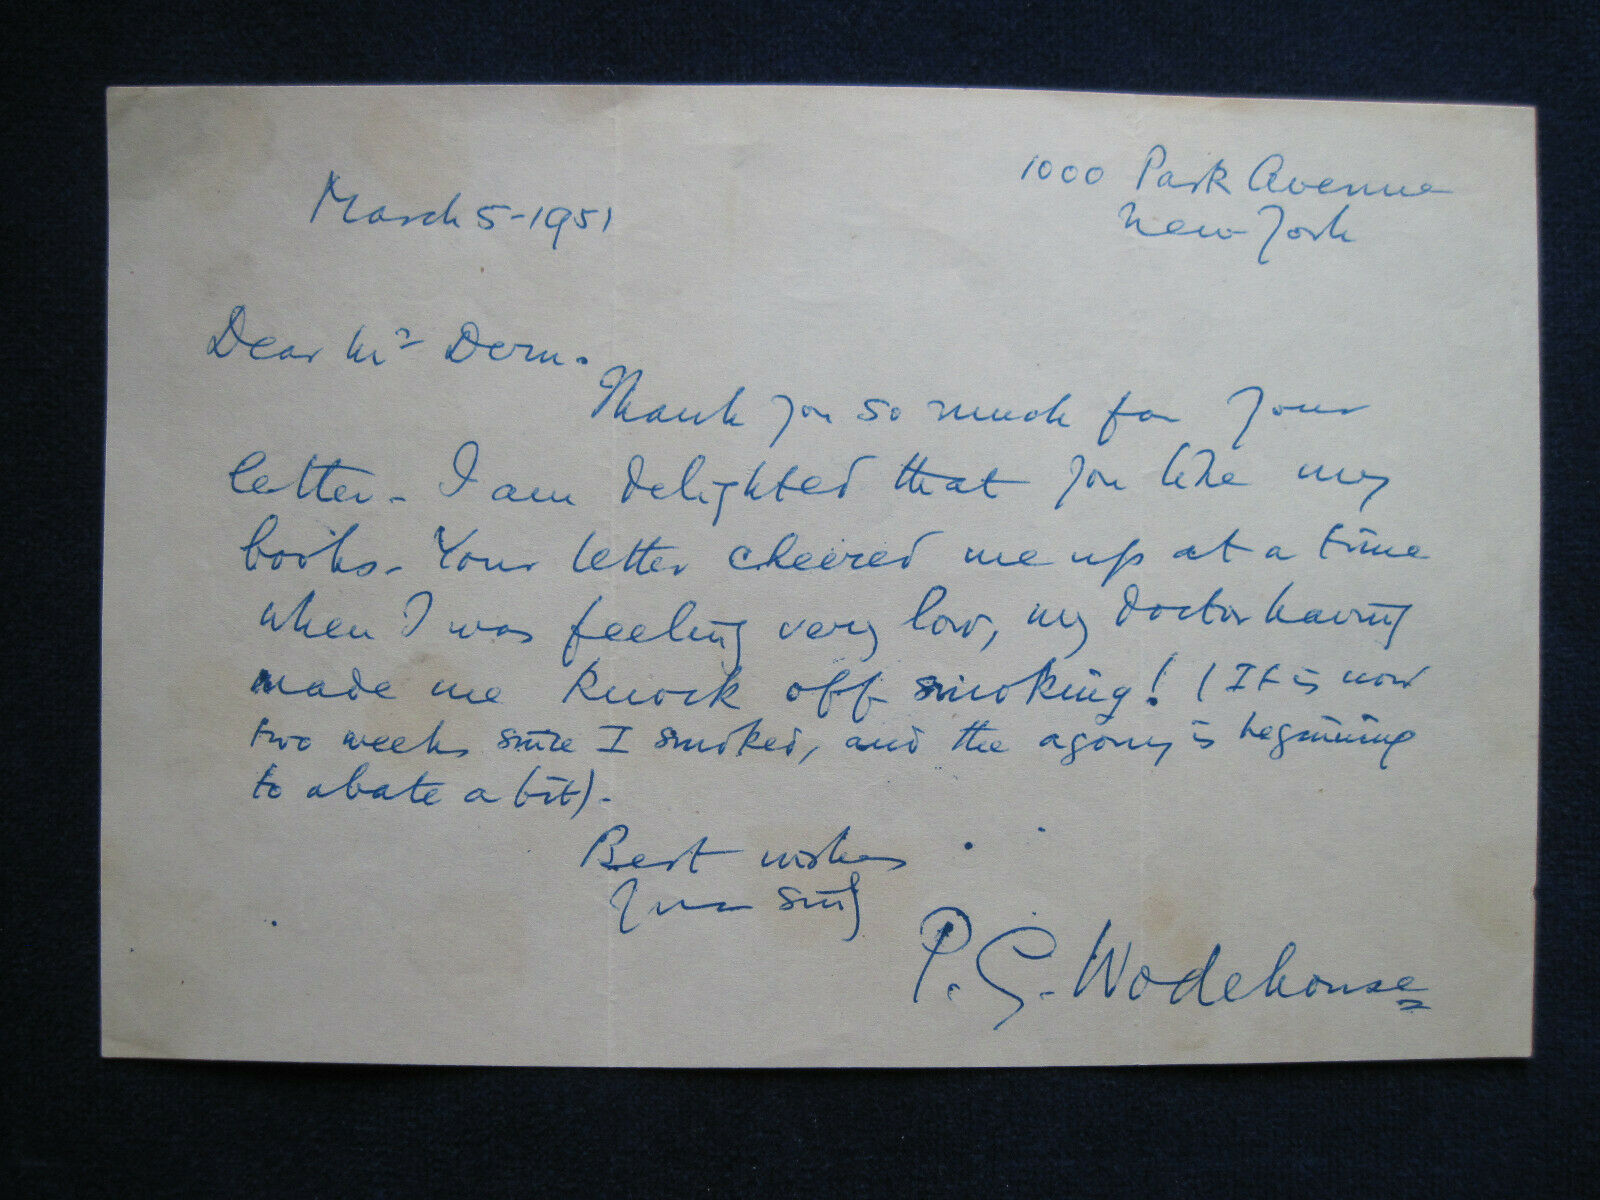 1000 Park Avenue
New York
March 5-1951
Dear Mr Dern.
Thank you so much for your
letter. I am delighted that you like my
books. Your letter cheered me up at a time
when I was feeling very low, my doctor having
made me knock off smoking! (It is now
two weeks since I smoked, and the agony is beginning
to abate a bit).
Best wishes
Yours
P. G. Wodehouse